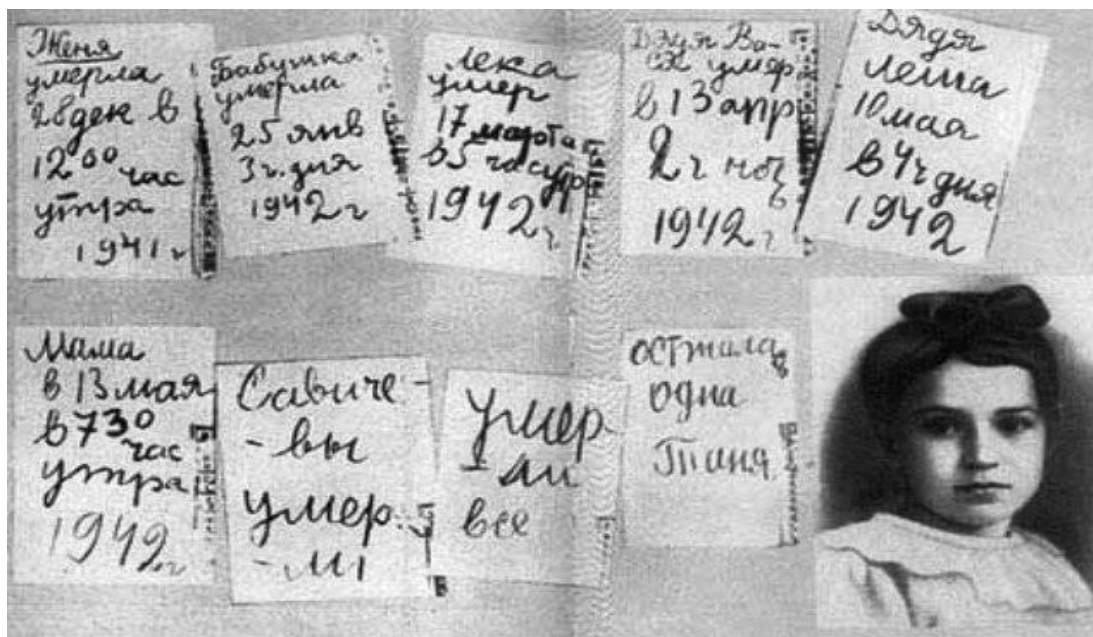 Женя
умерла
28 дек в
12 00 час
утра
1941 г
Бабушка
умерла
25 янв
3 ч. дня
1942 г
Лека
умер
17 марта
в 5 час утр
1942 г.
Дядя Ва-
ся умер
в 13 апр
2 ч ноч
1942 г
Дядя
Леша
10 мая
в 4 ч дня
1942
Мама
в 13 мая
в 730
час
утра
1942 г
Савиче-
-вы
умер.
-ли
Умер
-ли
все
осталась
одна
Таня